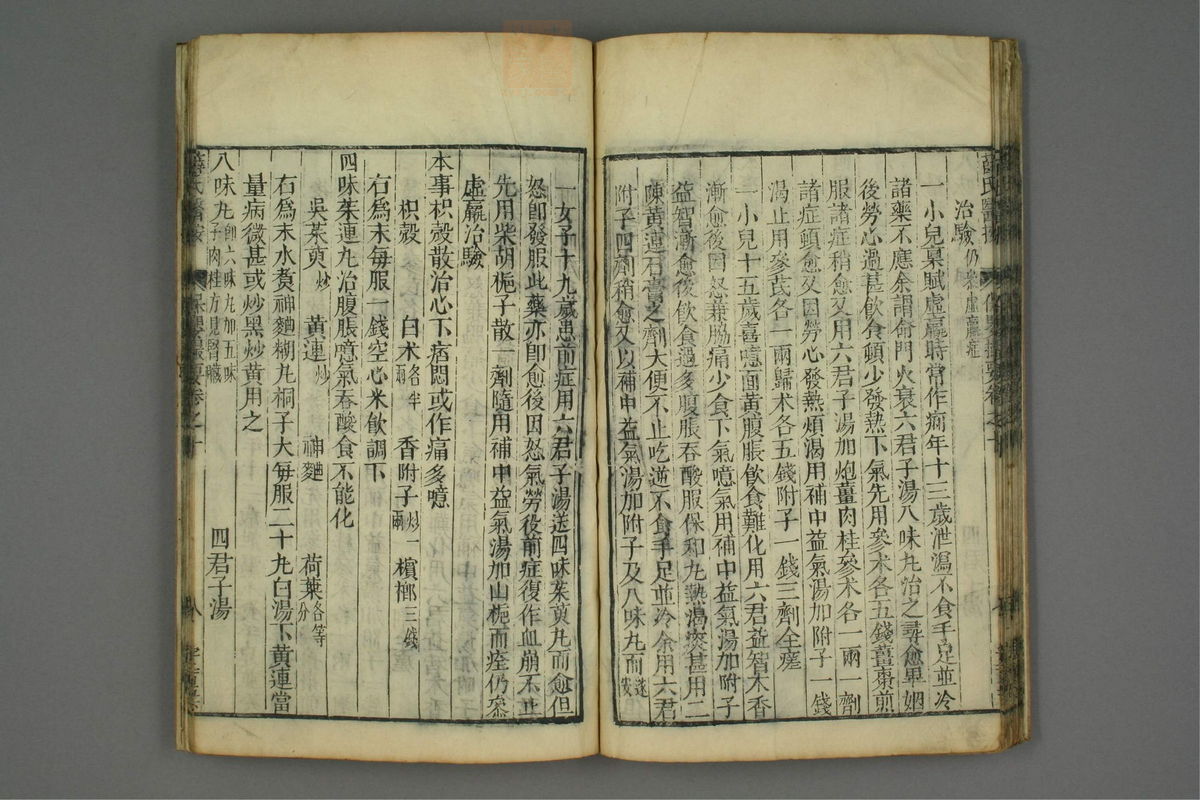 治驗仍參虛羸症
一小兒稟賦虛羸時常作痾年十三歲泄瀉不食手足並冷
諸藥不應余謂命門火衰六君子湯八味丸治之尋愈畢姻
後勞心過甚飲食頓少發熱下氣先用參术各五錢薑棗煎
服諸症稍愈又用六君子湯加炮薑肉桂參术各一兩一劑
諸症頓愈又因勞心發熱煩渴用補中益氣湯加附子一錢
渴止用參芪各一兩歸术各五錢附子一錢三劑全瘥
一小兒十五歲喜噫面黃腹脹飲食難化用六君益智木香
漸愈後因怒兼脇痛少食下氣噫氣用補中益氣湯加附子
益智漸愈後飲食過多腹脹吞酸服保和丸熱渴痰甚用二
陳黃連石膏之劑大便不止吃逆不食手足並冷余用六君
附子四劑稍愈又以補中益氣湯加附子及八味丸而
一女子十九歲患前症用六君子湯送四味茱萸丸而愈但
怒卽發服此藥亦卽愈後因怒氣勞役前症復作血崩不止
先用柴胡梔子散一劑隨用補中益氣湯加山梔而痊仍參
虛羸治驗
本事枳殼散治心下痞悶或作痛多噫
枳殼 白术各半兩 香附子炒一兩 檳榔三錢
右爲末每服一錢空心米飲調下
四味茱連丸治腹脹噫氣吞酸食不能化
吳茱萸炒 黃連炒 神麯 荷葉各等分
右爲末水煑神麯糊丸桐子大每服二十丸白湯下黃連當
量病微甚或炒黑炒黃用之
八味丸卽六味丸加五味子肉桂方見腎臟 四君子湯
薛氏醫按 保嬰撮要卷之十 八